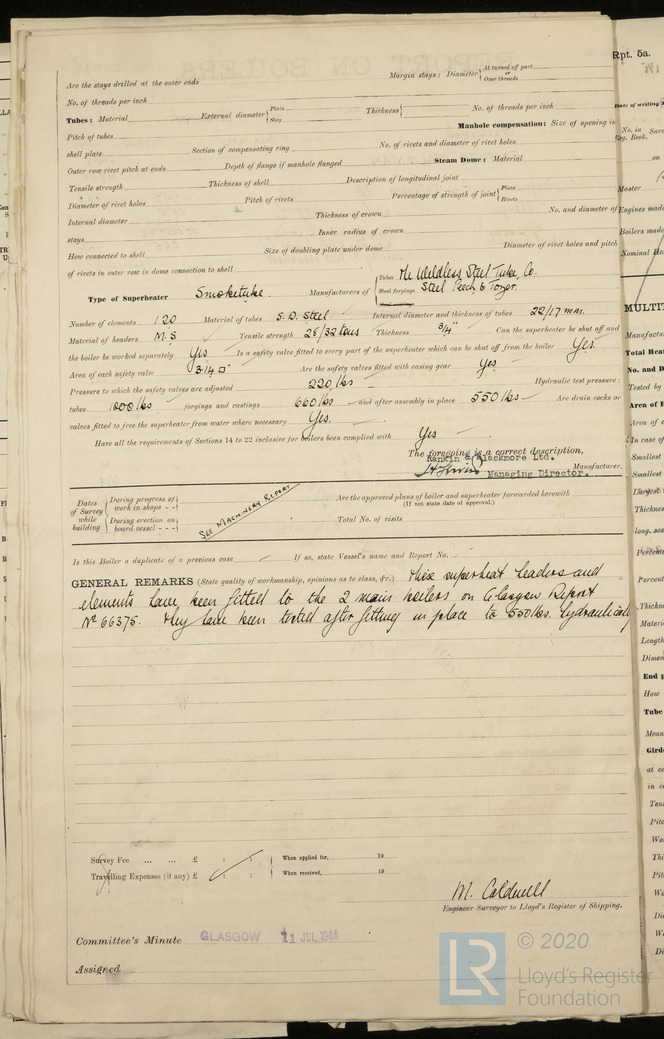 Are the stays drilled at the outer ends Margin stays: Diameter { At turned off part. or Over threads
No. of threads per inch
Tubes: Material External diameter { Plain Stay Thickness { No. of threads per inch
Manhole compensation: Size of opening in
Pitch of tubes No. of rivets and diameter of rivet holes
shell plate Section of compensating ring
Outer row rivet pitch at ends Depth of flange if manhole flanged Steam Dome: Material
Tensile strength Thickness of shell Description of longitudinal joint
Diameter of rivet holes Pitch of rivets Percentage of strength of joint { Plate Rivets
Internal diameter Thickness of crown No. and diameter of
stays Inner radius of crown
How connected to shell Size of doubling plate under dome Diameter of rivet holes and pitch
of rivets in outer row in dome connection to shell
Type of Superheater Smoketube. Manufacturers of { Tubes The Weldless Steel Tube Co. Steel forgings Steel Peech & Tozer. Steel castings
Number of elements 120 Material of tubes S.D. Steel Internal diameter and thickness of tubes 22/17 mm.
Material of headers M.S Tensile strength 28/32 tons Thickness 3/4" Can the superheater be shut off and
the boiler be worked separately Yes Is a safety valve fitted to every part of the superheater which can be shut off from the boiler Yes.
Area of each safety valve 3.14 □" Are the safety valves fitted with easing gear Yes
Pressure to which the safety valves are adjusted 220 lbs Hydraulic test pressure:
tubes 1000 lbs forgings and castings 660 lbs and after assembly in place 550 lbs Are drain cocks or
valves fitted to free the superheater from water where necessary Yes.
Have all the requirements of Sections 14 to 22 inclusive for boilers been complied with Yes
The foregoing is a correct description,
Rankin & Blackmore Ltd.
Manufacturer.
Managing Director.
Dates of Survey while building { During progress of work in shops - - } { During erection on board vessel - - - } SEE MACHINERY REPORT
Are the approved plans of boiler and superheater forwarded herewith
(If not state date of approval.)
Total No. of visits
Is this Boiler a duplicate of a previous case If so, state Vessel's name and Report No.
GENERAL REMARKS (State quality of workmanship, opinions as to class, &c.) These superheat headers and
elements have been fitted to the 2 main boilers on Glasgow Report
No 66375. They have been tested after fitting in place to 550 lbs. hydraulically
Survey Fee ... ... £ : : When applied for, 19
Travelling Expenses (if any) £ : : When received, 19
M. Caldwell
Engineer Surveyor to Lloyd's Register of Shipping.
Committee's Minute GLASGOW 11 JUL 1944
Assigned
© 2020
Lloyd's Register
Foundation
LR
Rpt. 5a.
Date of writing
No. in Reg. Book.
on
Master
Engines made
Boilers made
Nominal
MULTI
Manufactu
Total Hea
No. and D
Tested by
Area of F
Area of e
In case of
Smallest
Smallest
Largest
Thickness
long. sea
Percent
Percent
Thickn
Materi
Length
Dimen
End p
How
Tube
Mean
Gird
at ce
in c
Ten
Pitc
Wo
Thi
Pit
Wo
Di
Wo
Di